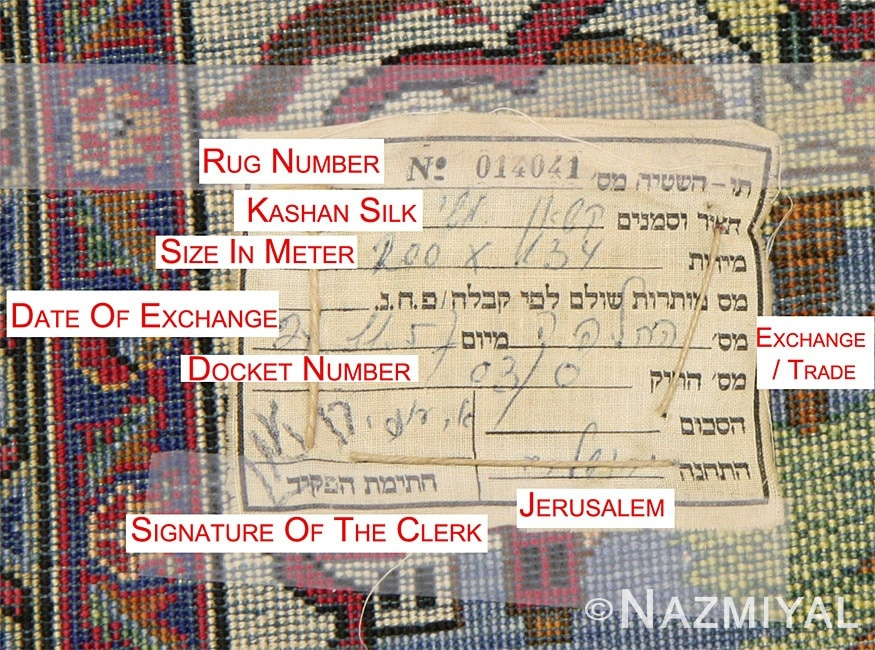 RUG NUMBER
תו - השטיח מס' 014041 №
KASHAN SILK
תאור וסמנים קשאן משי
SIZE IN METER
מידות 200 x 134
מס מותרות שולם לפי קבלה/פ.ח.נ.
DATE OF EXCHANGE
מס' החלפה מיום
EXCHANGE
/ TRADE
DOCKET NUMBER
מס' התיק
הסכום
התחנה ירושלים
חתימת הפקיד
JERUSALEM
SIGNATURE OF THE CLERK
©NAZMIYAL